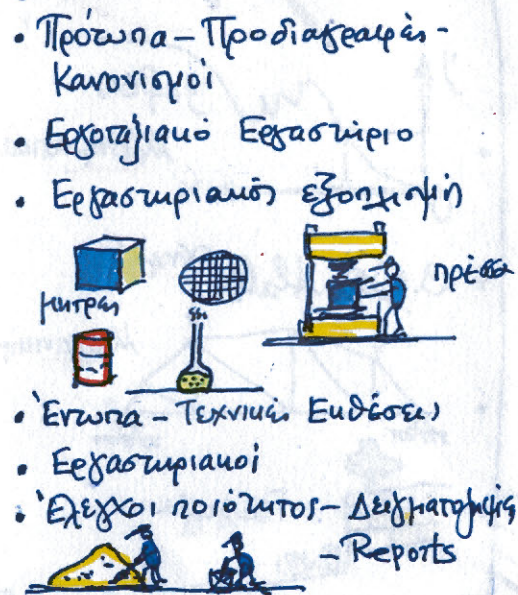 • Πρότυπα – Προδιαγραφές –
Κανονισμοί
• Εργοταξιακό Εργαστήριο
• Εργαστηριακός εξοπλισμός
μήτρες
πρέσσα
• Έντυπα – Τεχνικές Εκθέσεις
• Εργαστηριακοί
• Έλεγχοι ποιότητος – Δειγματοληψίες
– Reports